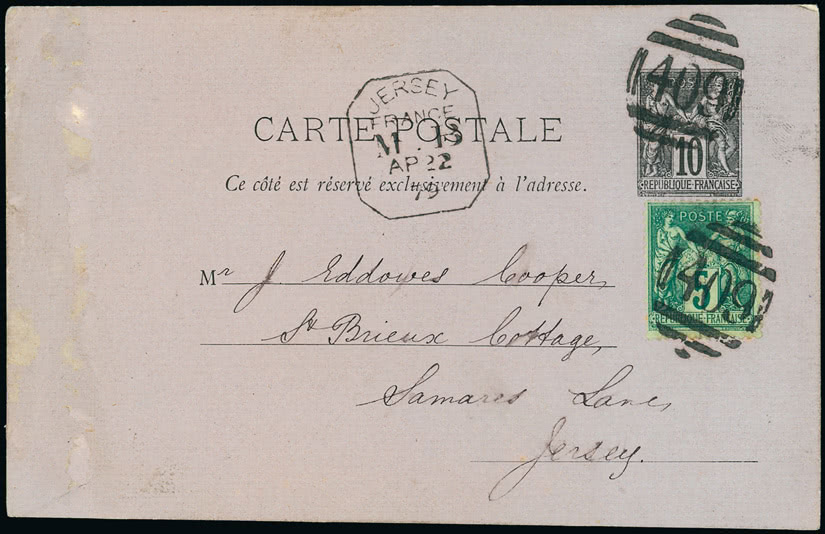 JERSEY
FRANCE
M . 18
AP 22
79
CARTE POSTALE
Ce côté est réservé exclusivement à l'adresse.
409
POSTE
10
REPUBLIQUE FRANÇAISE
POSTE
409
5
REPUBLIQUE FRANÇAISE
Mr J. Eddowes Cooper,
St Brieux Cottage,
Samares Lane,
Jersey.